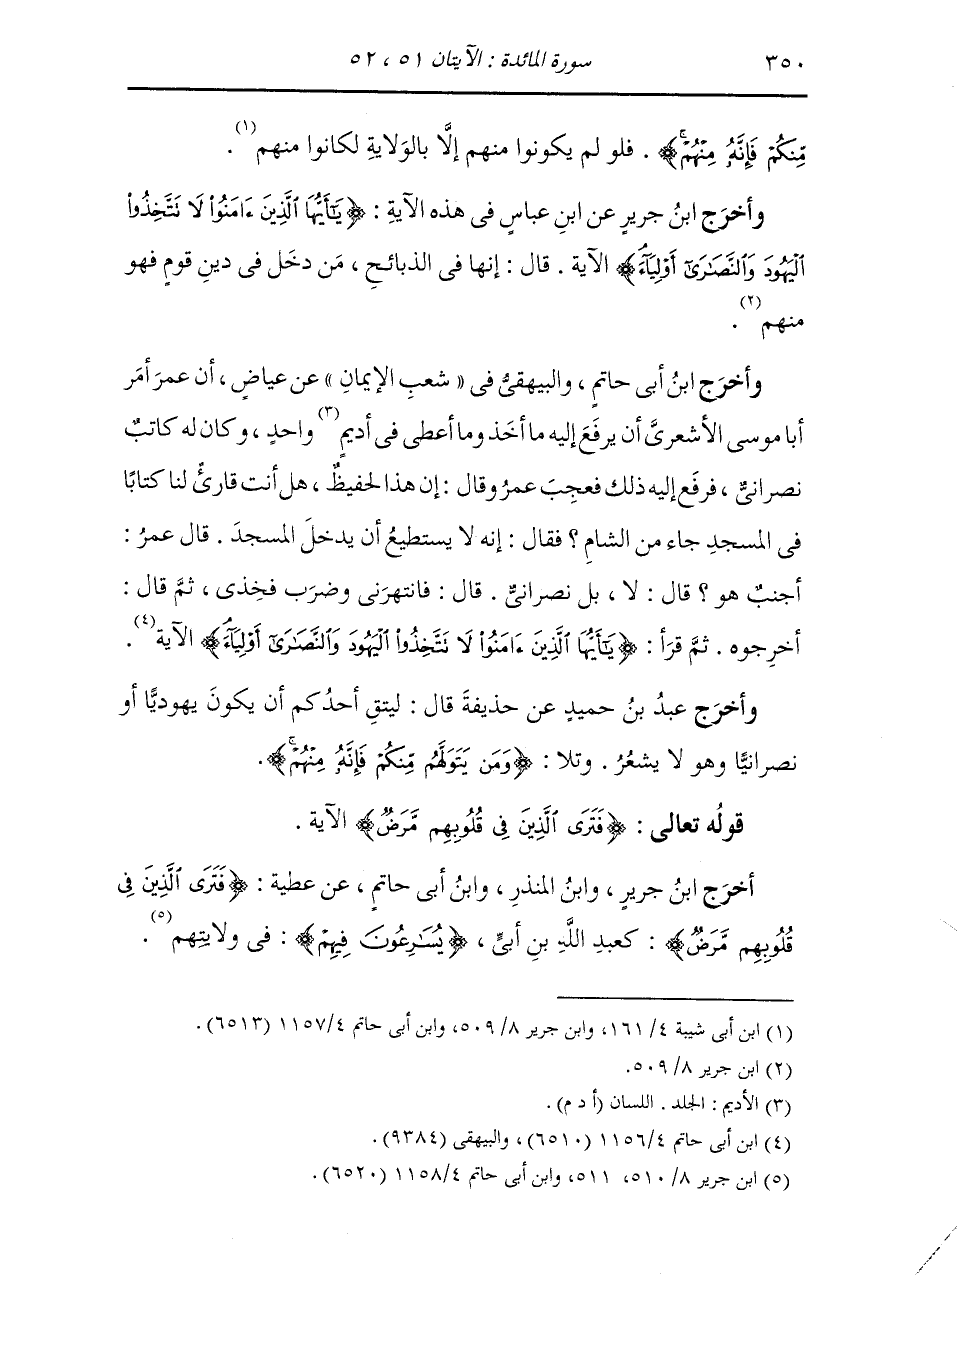 ٣٥٠ سورة المائدة : الآيتان ٥١ ، ٥٢
مِّنكُمْ فَإِنَّهُۥ مِنْهُمْۗ﴾ . فلو لم يكونوا منهم إلَّا بالوَلايةِ لكانوا منهم(١) .
وأخرَج ابنُ جريرٍ عن ابنِ عباسٍ فى هذه الآيةِ : ﴿يَٰٓأَيُّهَا ٱلَّذِينَ ءَامَنُوا۟ لَا تَتَّخِذُوا۟
ٱلْيَهُودَ وَٱلنَّصَٰرَىٰٓ أَوْلِيَآءَۘ﴾ الآية . قال : إنها فى الذبائحِ ، مَن دخَل فى دينِ قومٍ فهو
منهم(٢) .
وأخرَج ابنُ أبى حاتمٍ ، والبيهقىُّ فى « شعبِ الإيمانِ » عن عياضٍ ، أن عمرَ أمَر
أبا موسى الأشعرىَّ أن يرفَعَ إليه ما أخَذ وما أعطى فى أديمٍ(٣) واحدٍ ، وكان له كاتبٌ
نصرانىٌّ ، فرفَع إليه ذلك فعجِبَ عمرُ وقال : إن هذا لحفيظٌ ، هل أنت قارئٌ لنا كتابًا
فى المسجدِ جاء من الشامِ ؟ فقال : إنه لا يستطيعُ أن يدخلَ المسجدَ . قال عمرُ :
أجنبٌ هو ؟ قال : لا ، بل نصرانىٌّ . قال : فانتهرَنى وضرَب فخِذى ، ثمَّ قال :
أخرِجوه . ثمَّ قرَأ : ﴿يَٰٓأَيُّهَا ٱلَّذِينَ ءَامَنُوا۟ لَا تَتَّخِذُوا۟ ٱلْيَهُودَ وَٱلنَّصَٰرَىٰٓ أَوْلِيَآءَۘ﴾ الآية(٤) .
وأخرَج عبدُ بنُ حميدٍ عن حذيفةَ قال : ليتقِ أحدُكم أن يكونَ يهوديًّا أو
نصرانيًّا وهو لا يشعُرُ . وتلا : ﴿وَمَن يَتَوَلَّهُم مِّنكُمْ فَإِنَّهُۥ مِنْهُمْۗ﴾ .
قولُه تعالى : ﴿فَتَرَى ٱلَّذِينَ فِى قُلُوبِهِم مَّرَضٌ﴾ الآية .
أخرَج ابنُ جريرٍ ، وابنُ المنذرِ ، وابنُ أبى حاتمٍ ، عن عطيةَ : ﴿فَتَرَى ٱلَّذِينَ فِى
قُلُوبِهِم مَّرَضٌ﴾ : كعبدِ اللَّهِ بنِ أبىٍّ ، ﴿يُسَٰرِعُونَ فِيهِمْ﴾ : فى ولايتِهم(٥) .
(١) ابن أبى شيبة ٤/ ١٦١، وابن جرير ٨/ ٥٠٩، وابن أبى حاتم ٤/ ١١٥٧ (٦٥١٣) .
(٢) ابن جرير ٨/ ٥٠٩.
(٣) الأديم : الجلد . اللسان (أ د م) .
(٤) ابن أبى حاتم ٤/ ١١٥٦ (٦٥١٠) ، والبيهقى (٩٣٨٤) .
(٥) ابن جرير ٨/ ٥١٠، ٥١١، وابن أبى حاتم ٤/ ١١٥٨ (٦٥٢٠) .